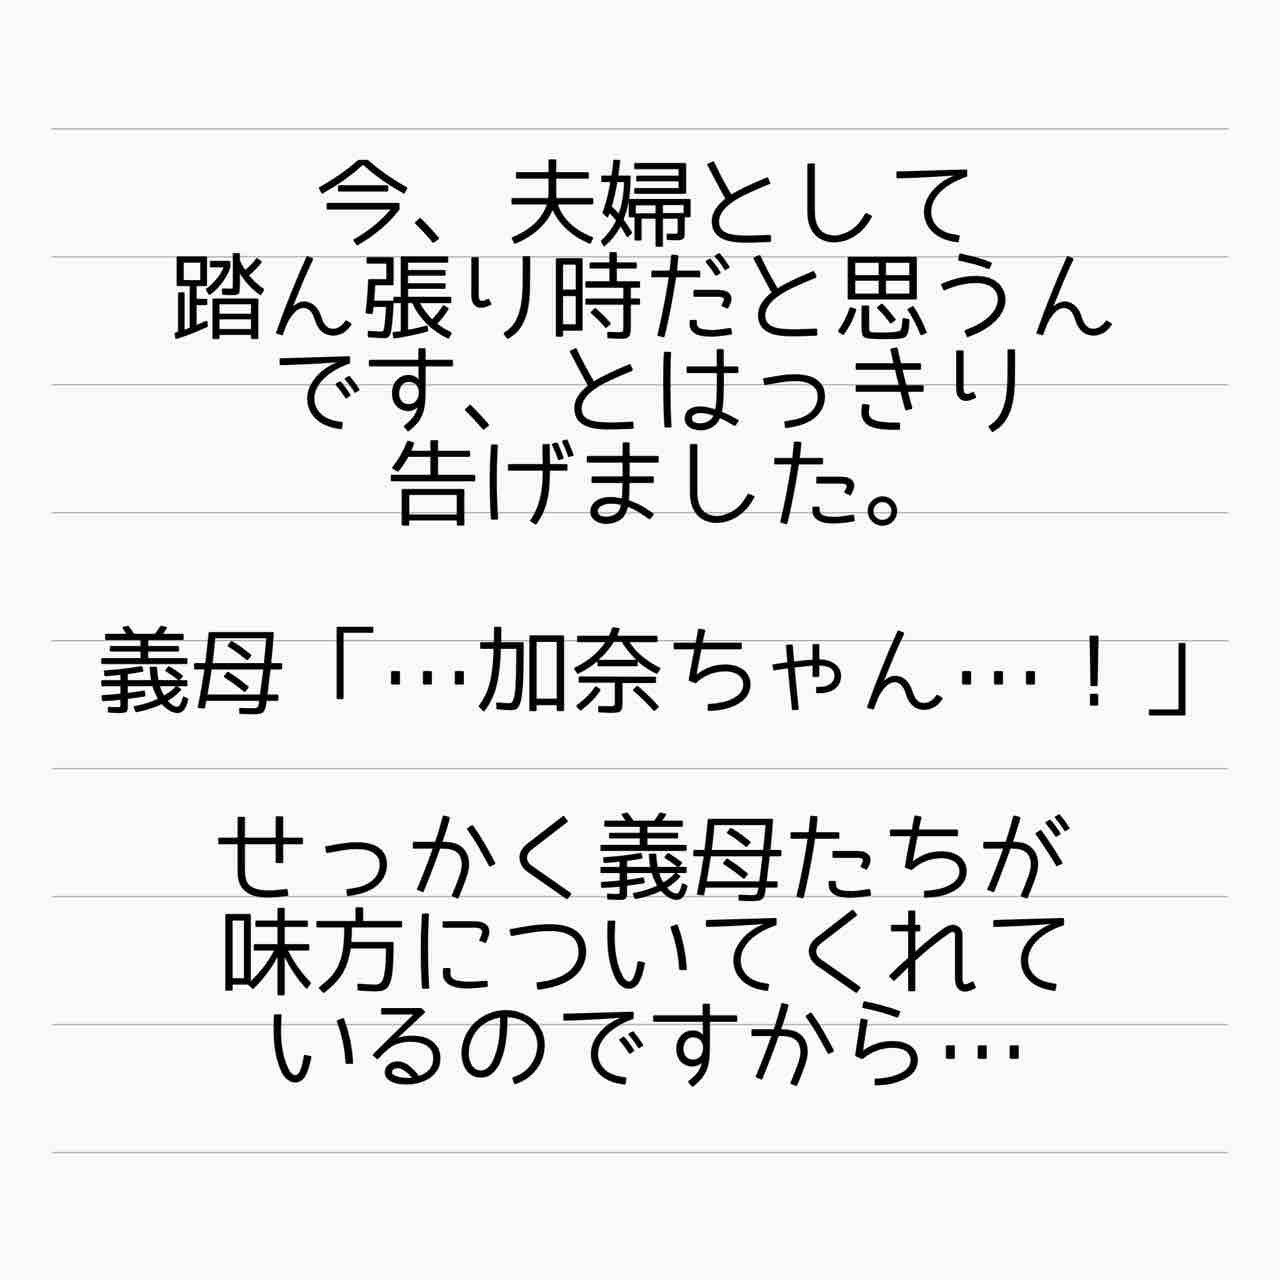 今、夫婦として
踏ん張り時だと思うん
です、とはっきり
告げました。
義母「…加奈ちゃん…！」
せっかく義母たちが
味方についてくれて
いるのですから…